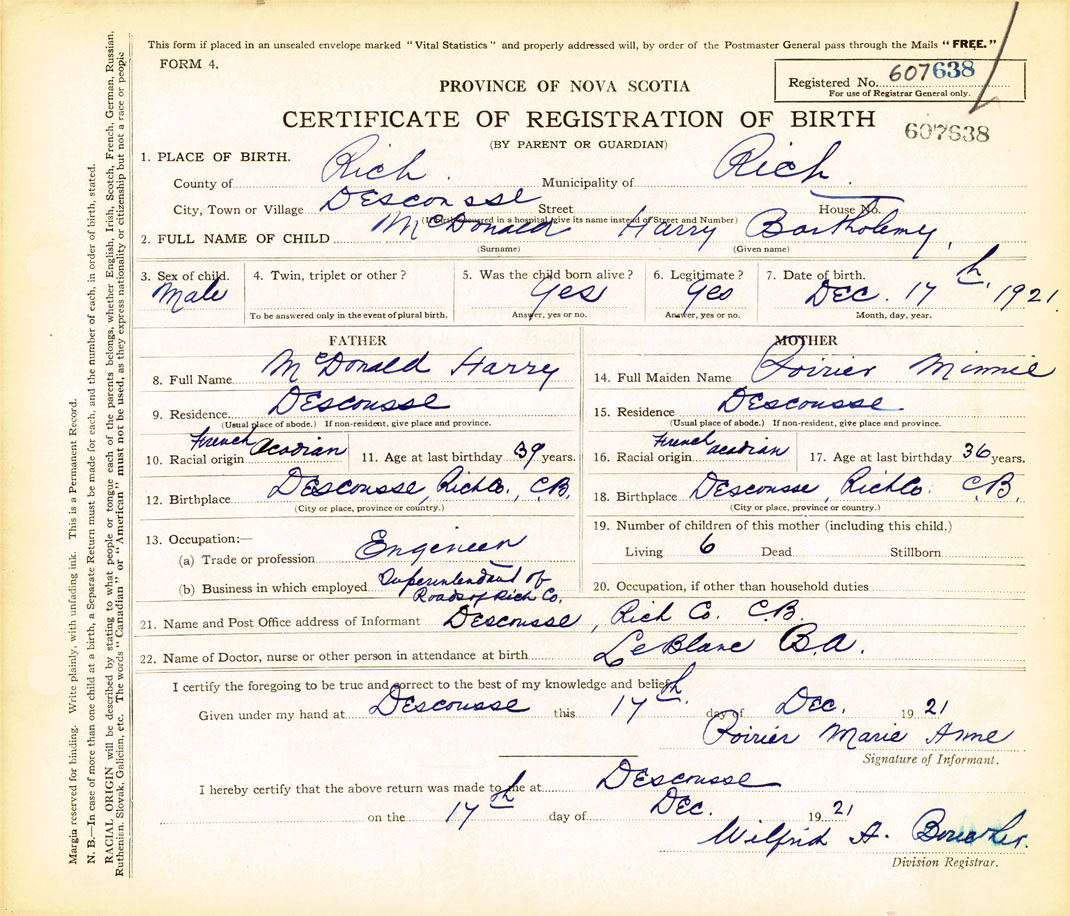 This form if placed in an unsealed envelope marked "Vital Statistics" and properly addressed will, by order of the Postmaster General pass through the Mails "FREE."
FORM 4.
Registered No. 607638
For use of Registrar General only.
PROVINCE OF NOVA SCOTIA
CERTIFICATE OF REGISTRATION OF BIRTH
607638
(BY PARENT OR GUARDIAN)
1. PLACE OF BIRTH.
County of Rich Municipality of Rich
City, Town or Village Descousse Street House No.
(If birth occurred in a hospital, give its name instead of Street and Number)
2. FULL NAME OF CHILD McDonald Harry Bartholemy
(Surname) (Given name)
3. Sex of child. 4. Twin, triplet or other? 5. Was the child born alive? 6. Legitimate? 7. Date of birth.
Male Yes Yes Dec. 17th, 1921
To be answered only in the event of plural birth. Answer, yes or no. Answer, yes or no. Month, day, year.
FATHER
8. Full Name McDonald Harry
9. Residence Descousse
(Usual place of abode.) If non-resident, give place and province.
10. Racial origin French Acadian 11. Age at last birthday 39 years.
12. Birthplace Descousse, Rich Co., C.B.
(City or place, province or country.)
13. Occupation:—
(a) Trade or profession Engineer
(b) Business in which employed Superintendant of
Roads of Rich Co.
MOTHER
14. Full Maiden Name Poirier Minnie
15. Residence Descousse
(Usual place of abode.) If non-resident, give place and province.
16. Racial origin French acadian 17. Age at last birthday 36 years.
18. Birthplace Descousse, Rich Co. C.B.
(City or place, province or country.)
19. Number of children of this mother (including this child.)
Living 6 Dead Stillborn
20. Occupation, if other than household duties
21. Name and Post Office address of Informant Descousse, Rich Co. C.B.
22. Name of Doctor, nurse or other person in attendance at birth LeBlanc B.A.
I certify the foregoing to be true and correct to the best of my knowledge and belief.
Given under my hand at Descousse this 17th day of Dec. 1921
Poirier Marie Anne
Signature of Informant.
I hereby certify that the above return was made to me at Descousse
on the 17th day of Dec. 1921
Wilfrid A.
Division Registrar.
Margin reserved for binding. Write plainly, with unfading ink. This is a Permanent Record.
N. B.—In case of more than one child at a birth, a Separate Return must be made for each, and the number of each, in order of birth, stated.
RACIAL ORIGIN will be described by stating to what people or tongue each of the parents belongs, whether English, Irish, Scotch, French, German, Russian,
Ruthenian, Slovak, Galician, etc. The words "Canadian" or "American" must not be used, as they express nationality or citizenship but not a race or people